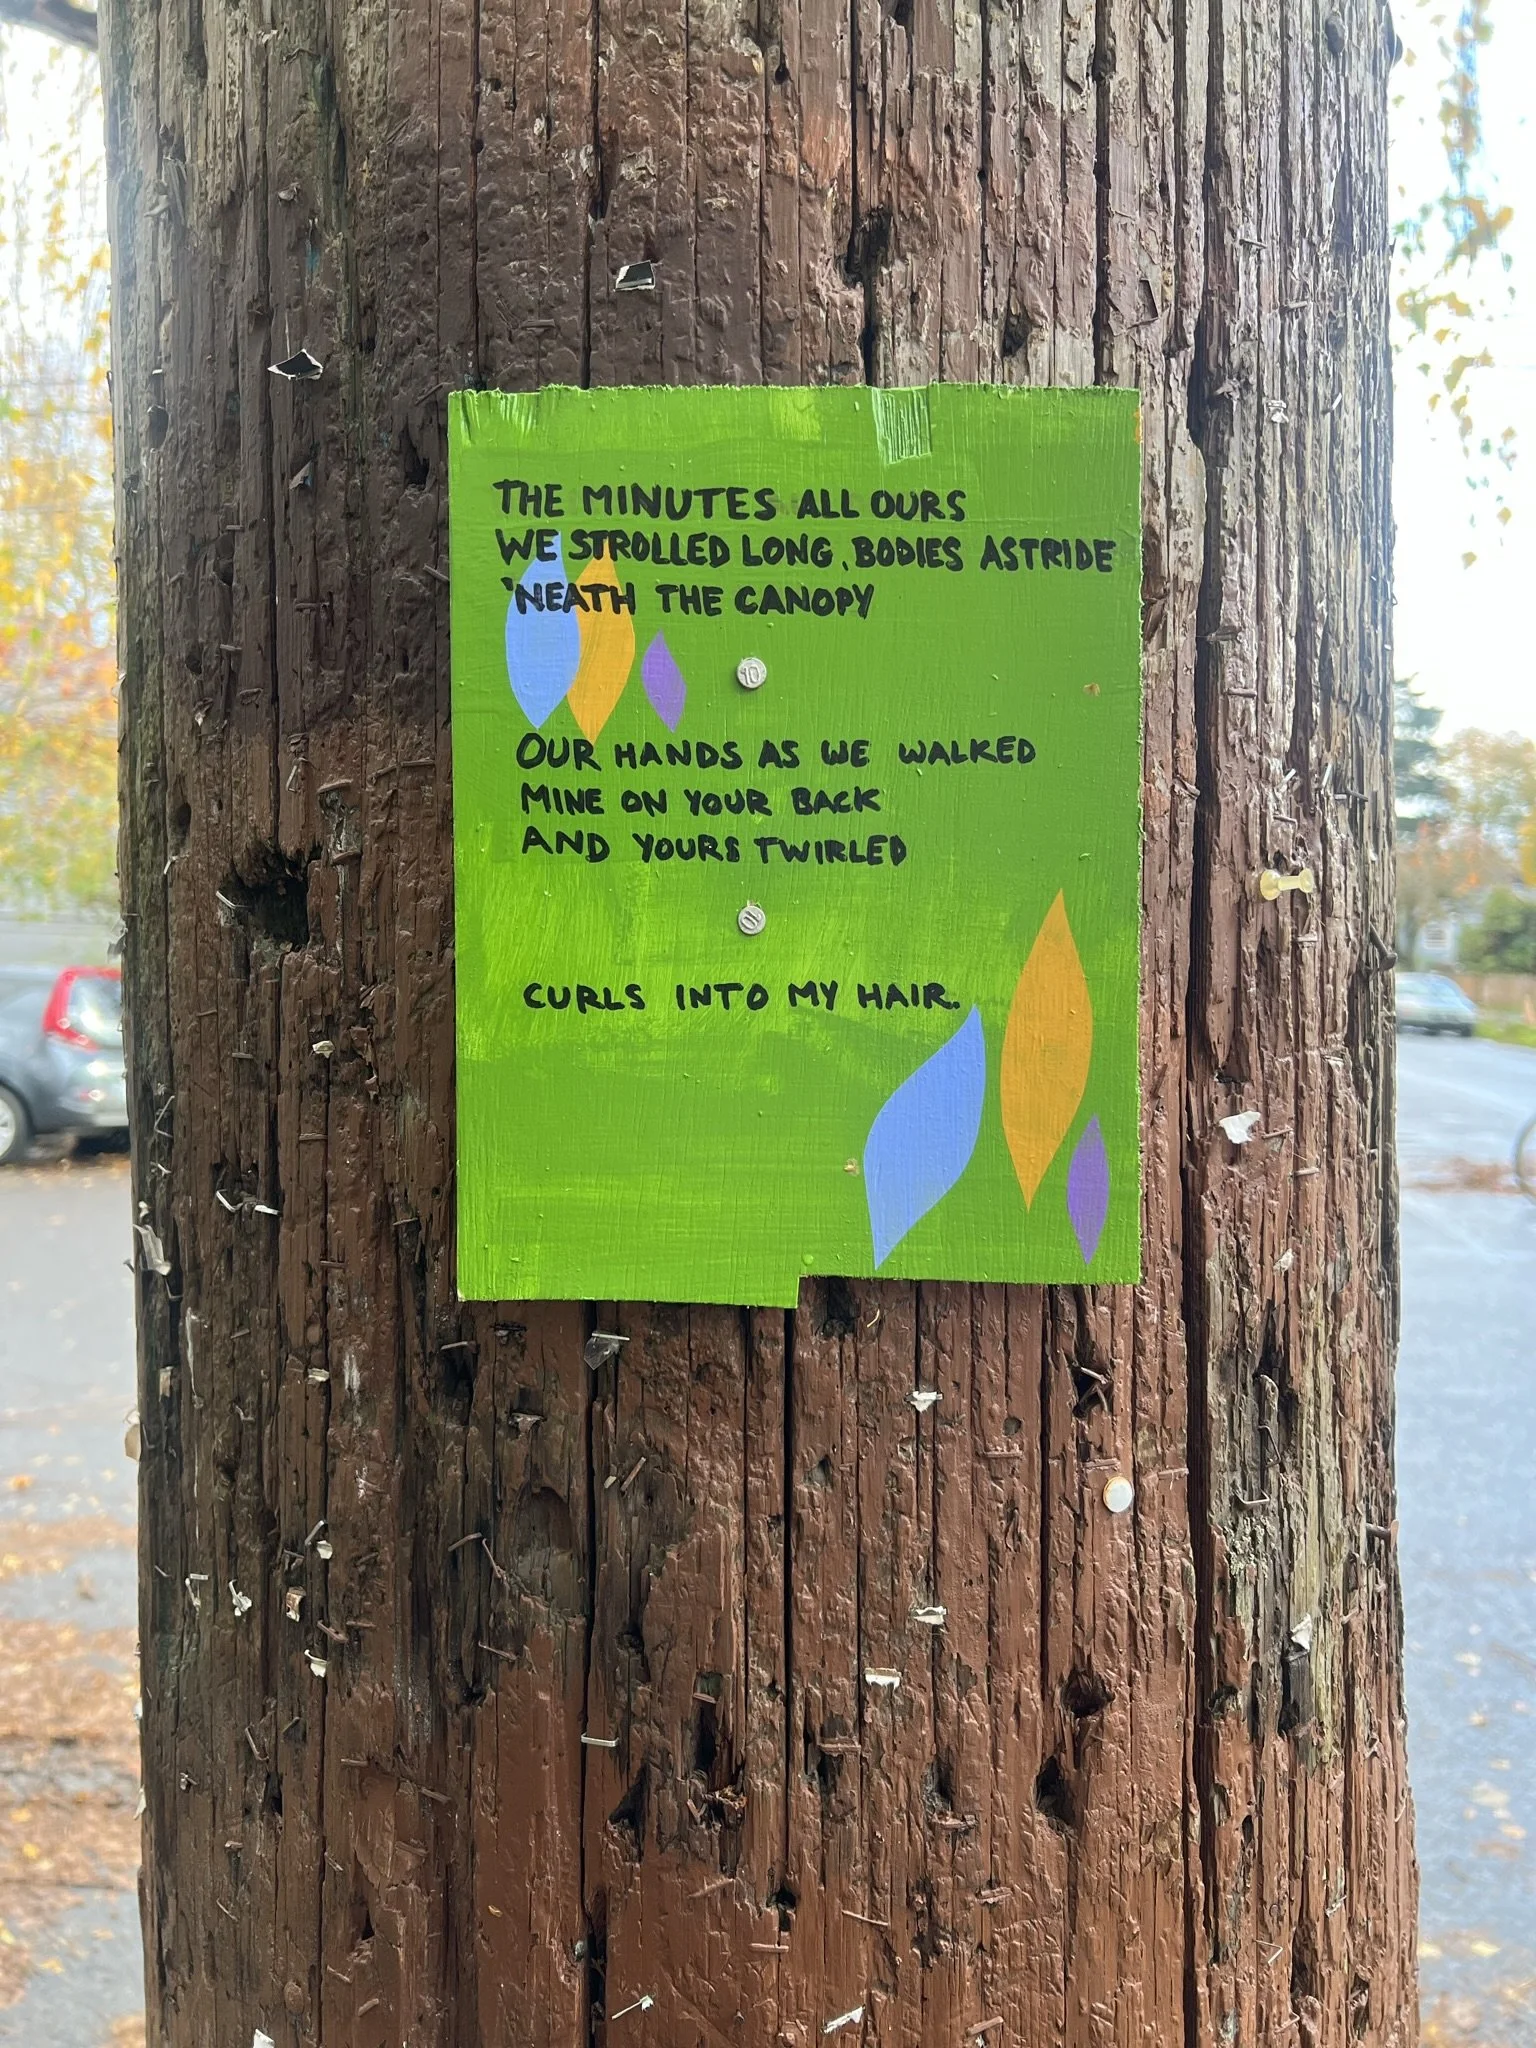 THE MINUTES ALL OURS
WE STROLLED LONG, BODIES ASTRIDE
'NEATH THE CANOPY
10
OUR HANDS AS WE WALKED
MINE ON YOUR BACK
AND YOURS TWIRLED
10
CURLS INTO MY HAIR.